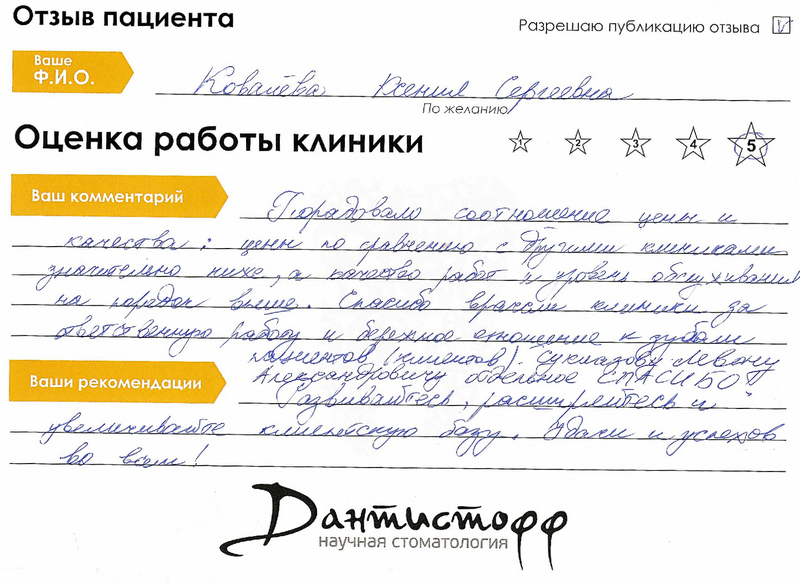 Отзыв пациента
Разрешаю публикацию отзыва
Ваше
Ф.И.О.
Ковалёва Ксения Сергеевна
По желанию
Оценка работы клиники
1 2 3 4 5
Ваш комментарий
Порадовало соотношение цены и
качества: цены по сравнению с другими клиниками
значительно ниже, а качество работ и уровень обслуживания
на порядок выше. Спасибо врачам клиники за
ответственную работу и бережное отношение к зубам
пациентов (клиентов). Сукиазову Левону
Александровичу отдельное СПАСИБО!!
Ваши рекомендации
Развивайтесь, расширяйтесь и
увеличивайте клиентскую базу. Удачи и успехов
во всём!
Дантистофф
научная стоматология